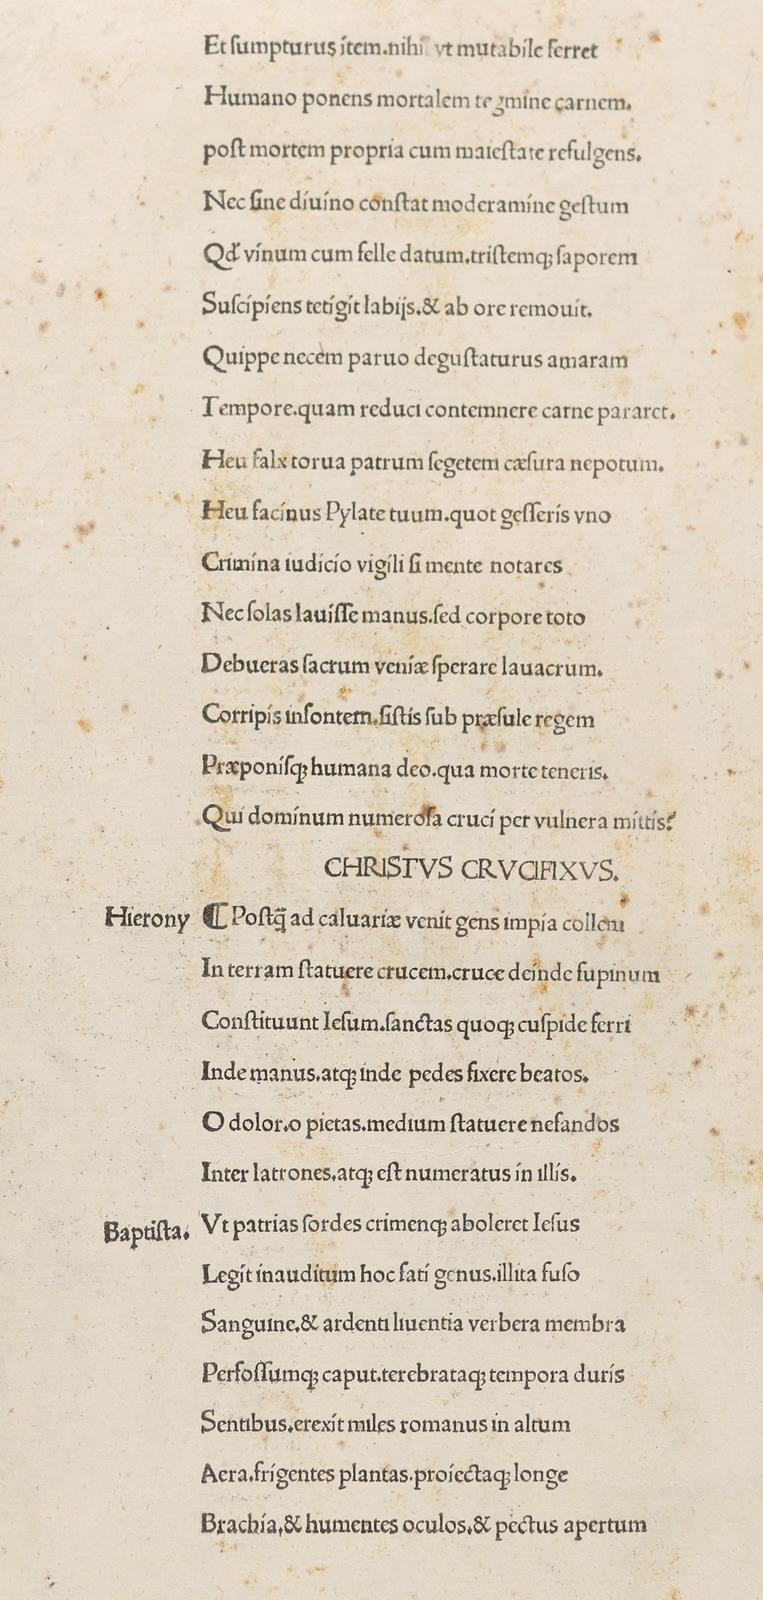 Et ſumpturus item.nihi vt mutabile ferret
Humano ponens mortalem tegmine carnem.
poſt mortem propria cum maieſtate refulgens.
Nec ſine diuino conſtat moderamine geſtum
Qđ vinum cum felle datum.triſtemqꝫ ſaporem
Suſcipiens tetigit labijs.& ab ore remouit.
Quippe necem paruo deguſtaturus amaram
Tempore.quam reduci contemnere carne pararet.
Heu falx torua patrum ſegetem cæſura nepotum.
Heu facinus Pylate tuum.quot geſſeris vno
Crimina iudicio vigili ſi mente notares
Nec ſolas lauiſſe manus.ſed corpore toto
Debueras ſacrum veniæ ſperare lauacrum.
Corripis inſontem.ſiſtis ſub præſule regem
Præponiſqꝫ humana deo.qua morte teneris.
Qui dominum numeroſa cruci per vulnera mittis?
CHRISTVS CRVCIFIXVS.
Hierony ¶ Poſtq̃ ad caluariæ venit gens impia collem
In terram ſtatuere crucem.cruce deinde ſupinum
Conſtituunt Ieſum.ſanctas quoqꝫ cuſpide ferri
Inde manus.atqꝫ inde pedes fixere beatos.
O dolor.o pietas.medium ſtatuere nefandos
Inter latrones.atqꝫ eſt numeratus in illis.
Baptiſta. Vt patrias ſordes crimenqꝫ aboleret Ieſus
Legit inauditum hoc fati genus.illita fuſo
Sanguine.& ardenti liuentia verbera membra
Perfoſſumqꝫ caput.terebrataqꝫ tempora duris
Sentibus.erexit miles romanus in altum
Aera.frigentes plantas.proiectaqꝫ longe
Brachia.& humentes oculos.& pectus apertum